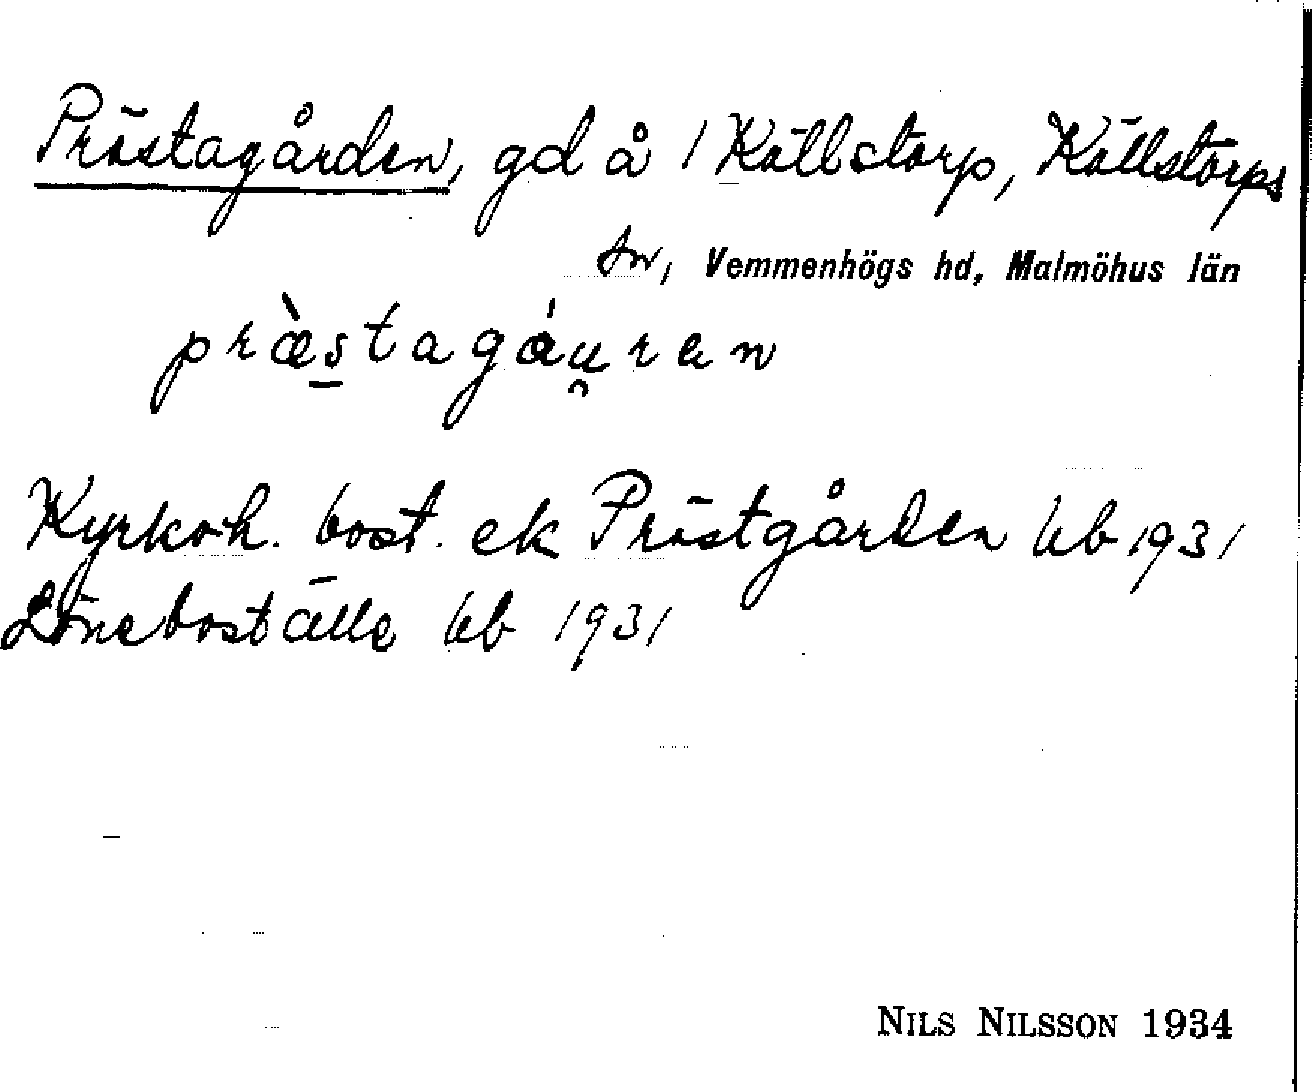 Prästagården, gd å 1 Källstorp, Källstorps
sn, Vemmenhögs hd, Malmöhus län
præ̀stagáu̯ren
Kyrkoh. bost. ek Prästgården kb 1931
Löneboställe kb 1931
NILS NILSSON 1934